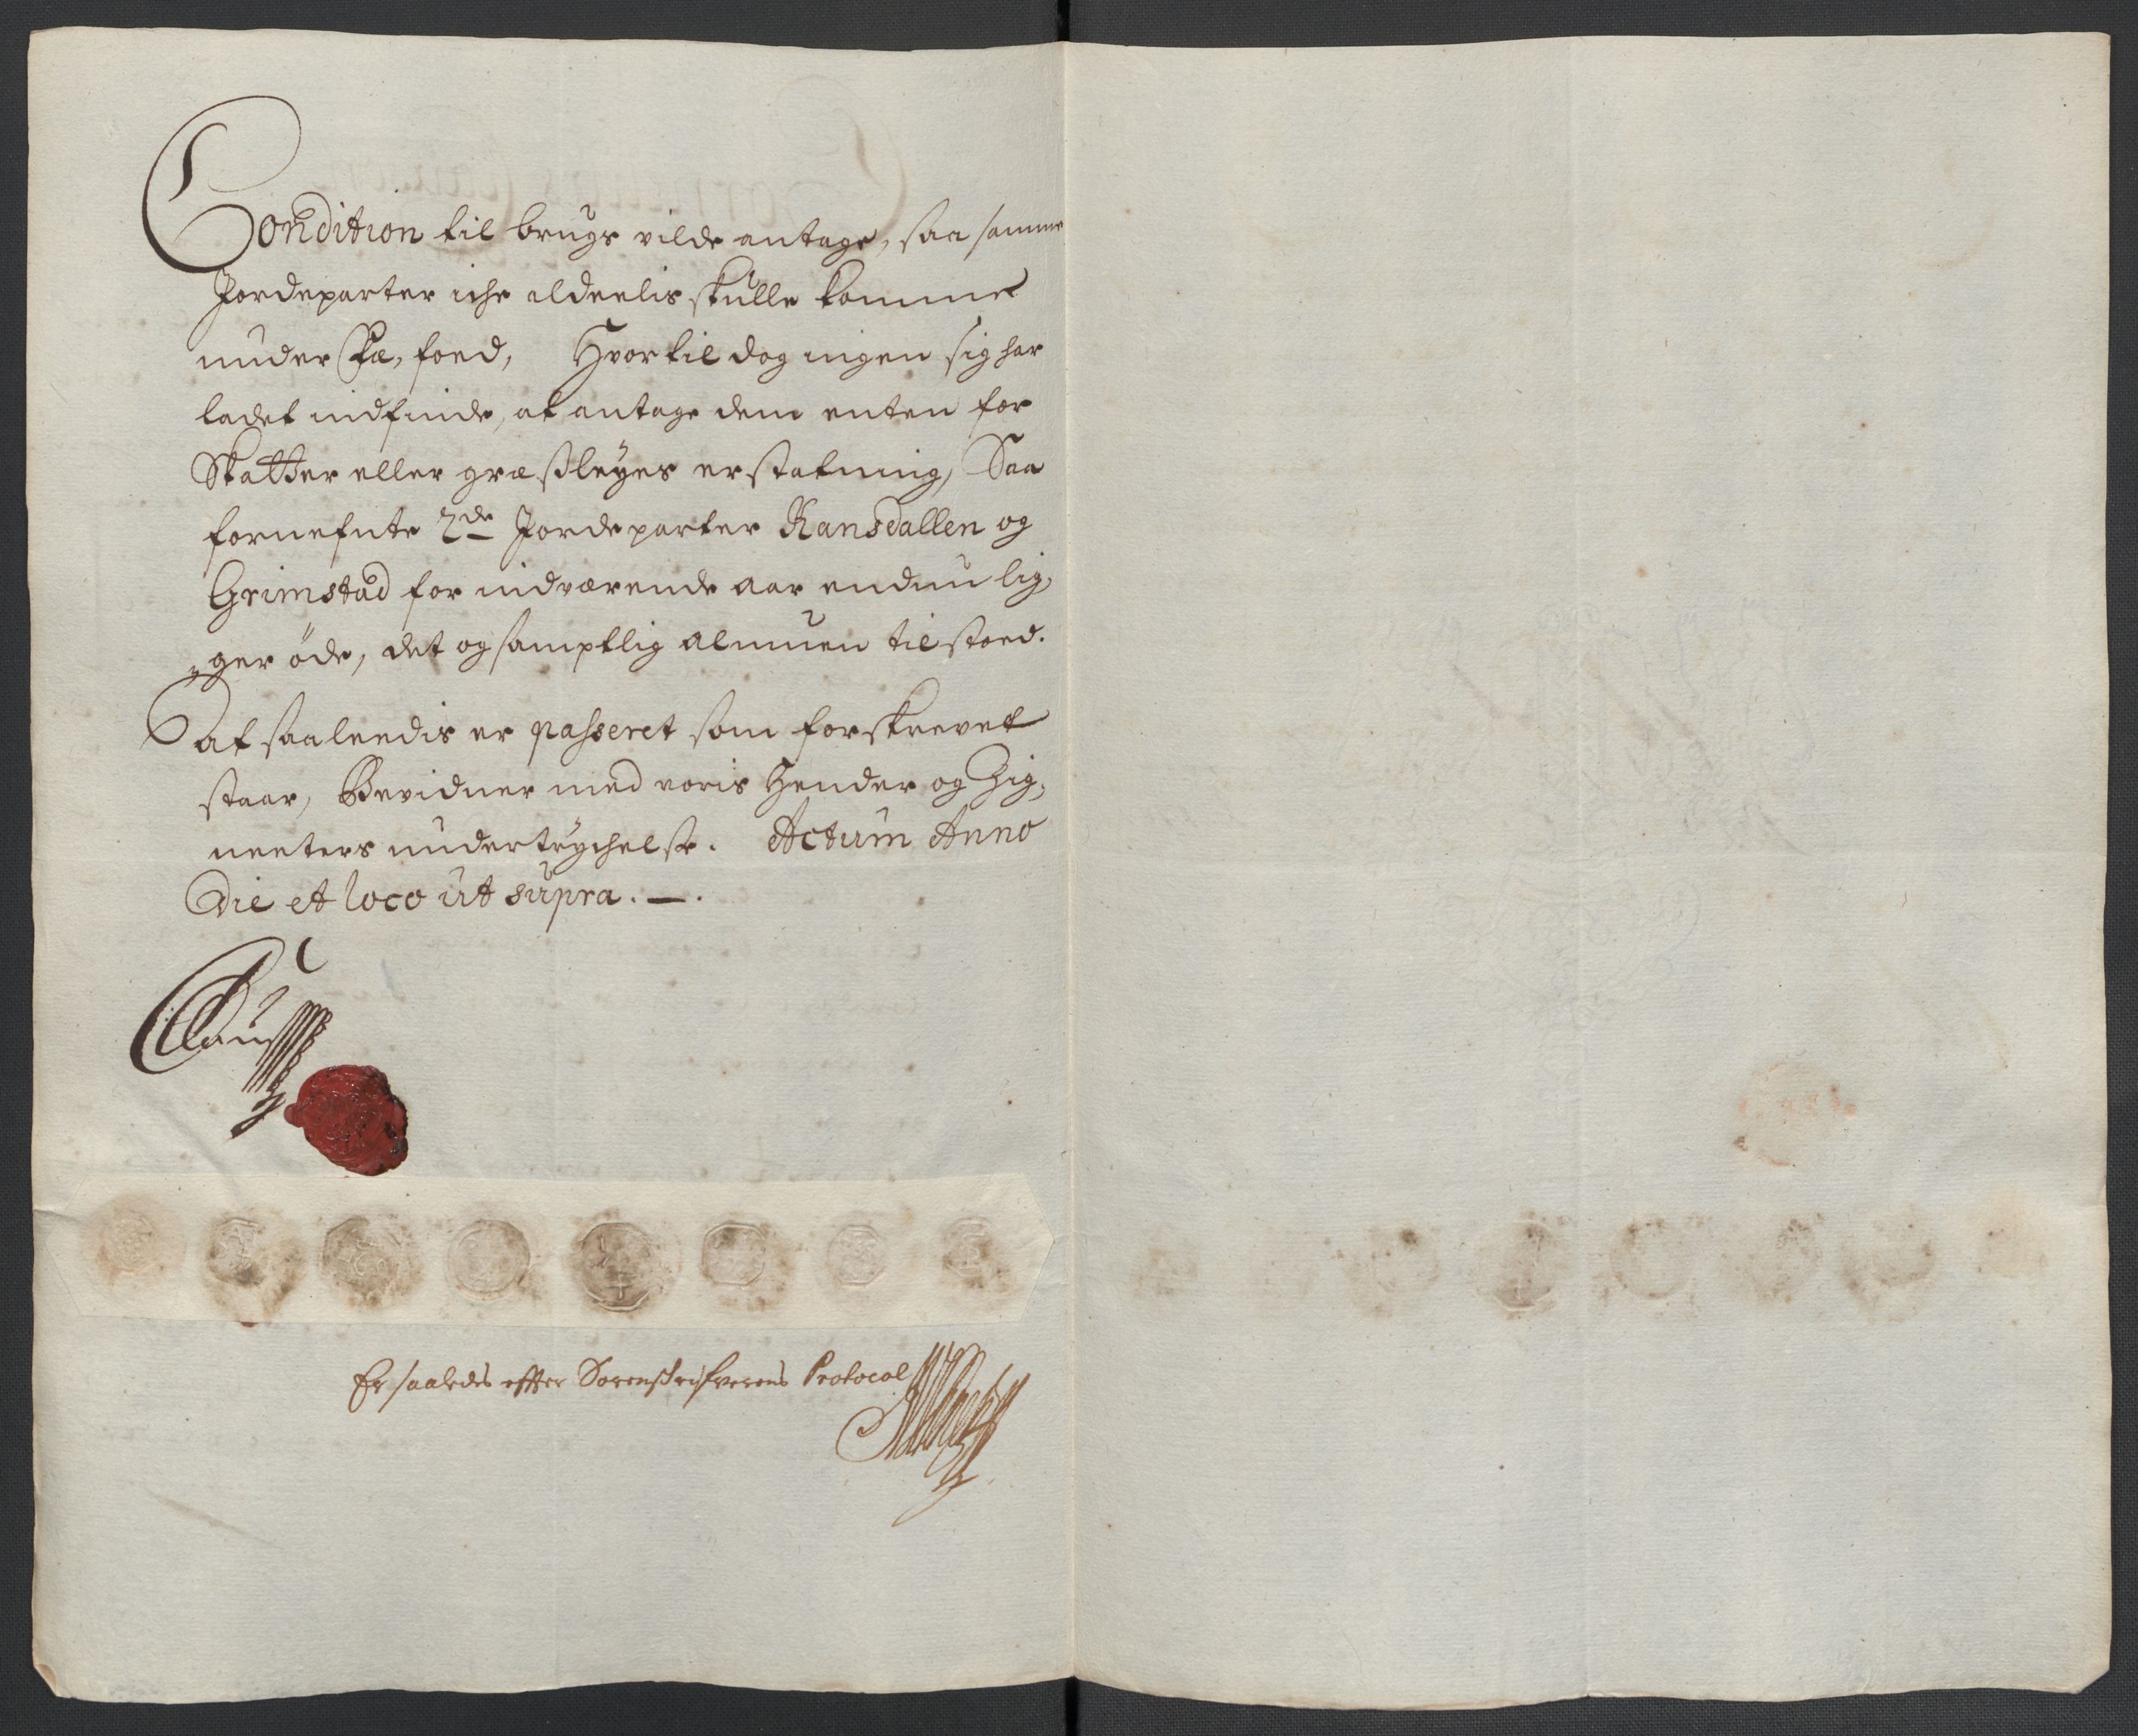 Condition til brugs vilde antage, saa samme
Jordeparter iche aldeelis skulle komme
under Fæ, foed, Hvortil dog ingen sig har
ladet indfinde, at antage dem enten for
Skatter eller græsleyes erstatning, Saa
fornefnte 2de Jordeparter Ransdallen og
Grimstad for indværende aar endnu lig,
,ger øde, det og samptlig almuen tilstoed.
At saaleedis er passeret som forskrevet
staar, Bevidner med voris Hender og Zig,
neeters undertrychelse. Actum Anno
Die et loco ut supra. —.
Er saaledes effter Sorenschrifverens Protocol